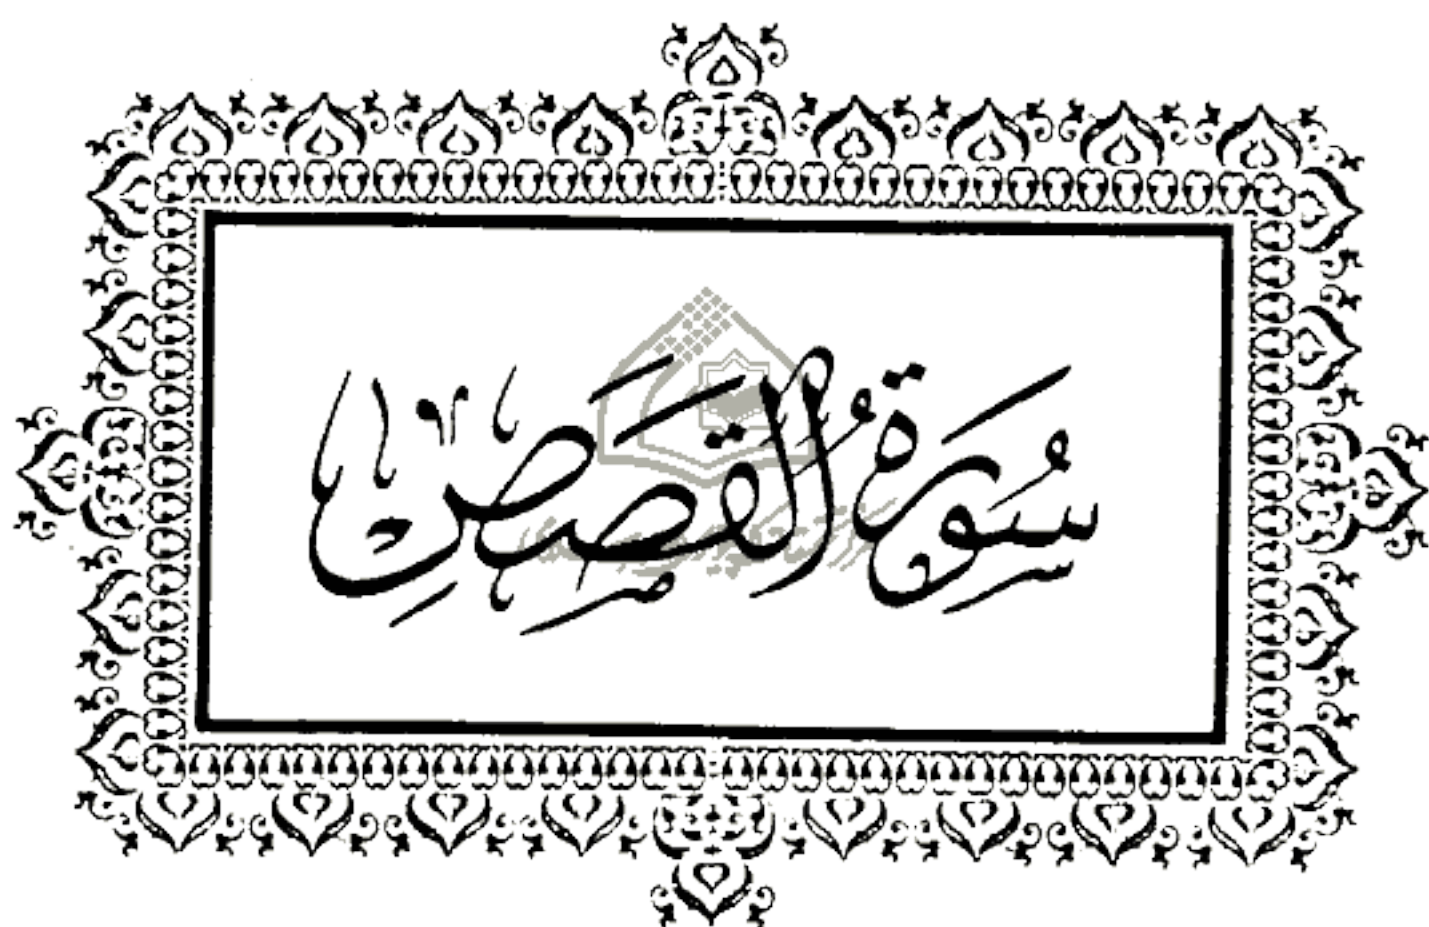 سُورَةُ الْقَصَصِ